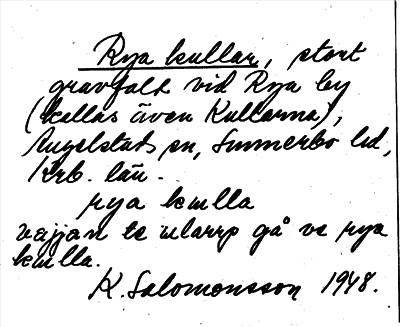 Rya kullar, stort
gravfält vid Rya by
(kallas även Kullarna),
Angelstads sn, Sunnerbo hd,
Krb. län.
rya kwlla
vajjan te gå ve rya
kwlla.
K. Salomonsson 1948.